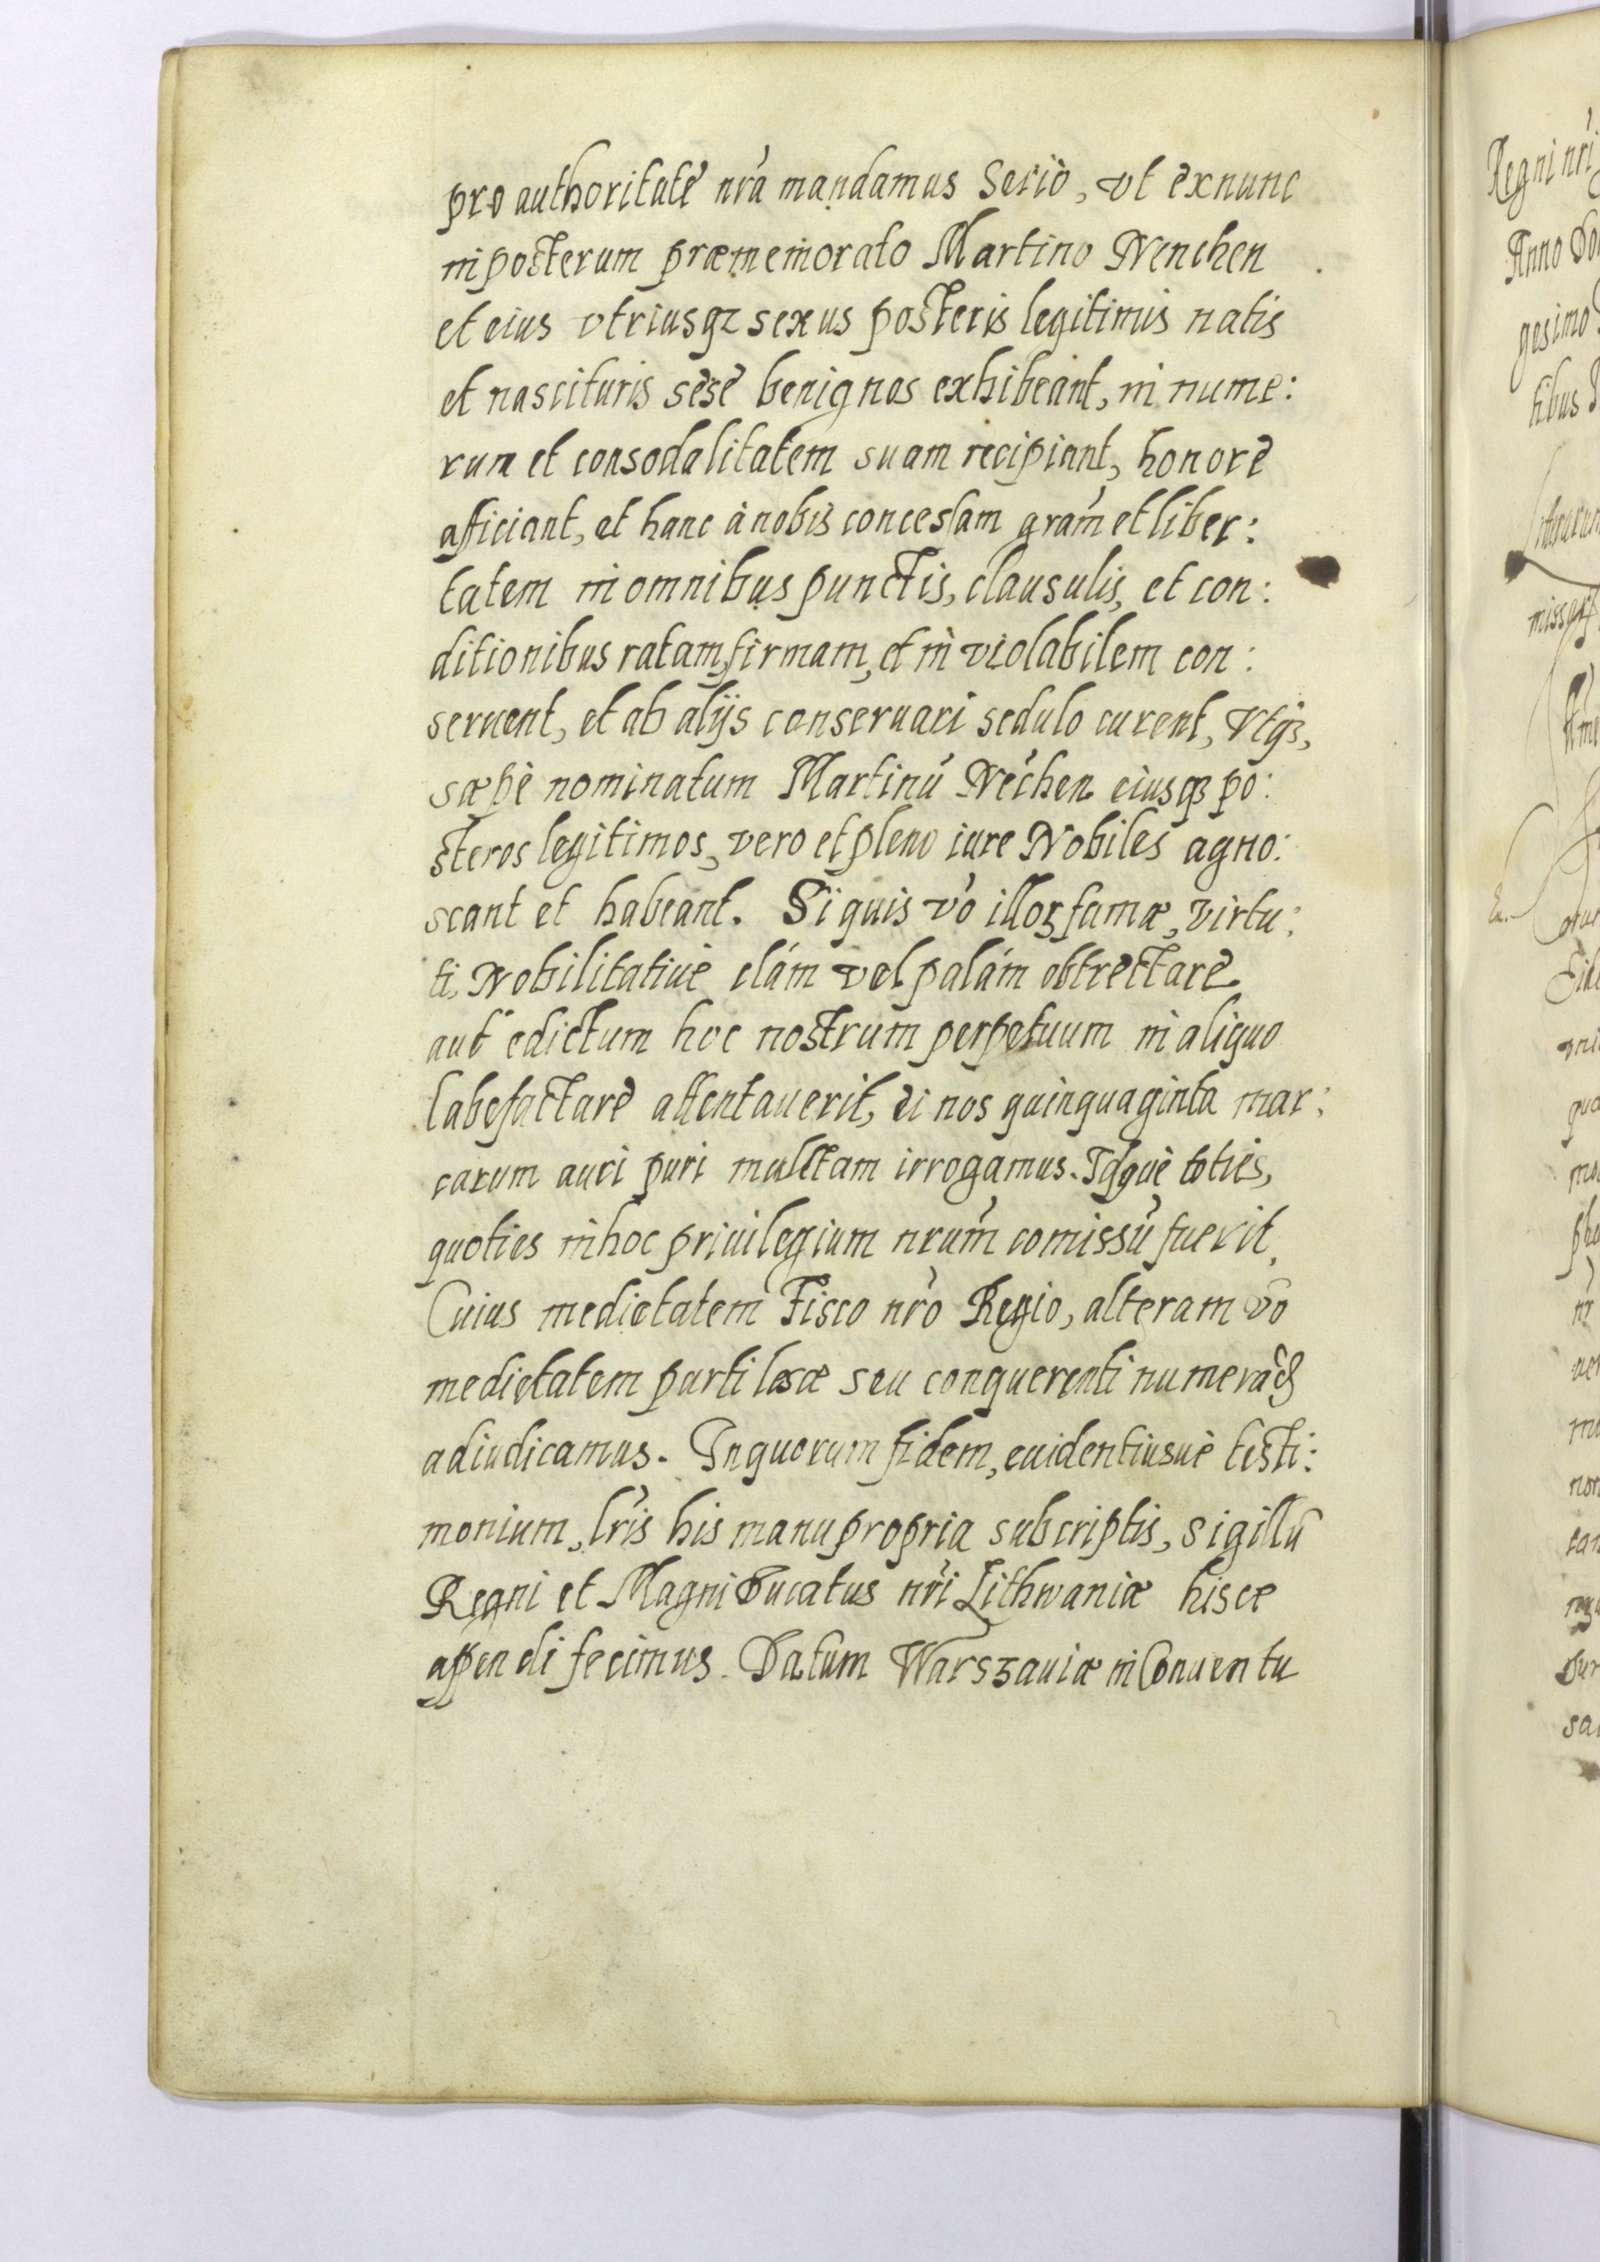 pro authoritate nr̃a mandamus Seriò, vt exnunc
in posterum præmemorato Martino Nenchen
et eius vtriusqz sexus posteris legitimis natis
et nascituris sese benignos exhibeant, in nume:
rum et consodalitatem suam recipiant, honore
afficiant, et hanc à nobis concessam gram̃ et liber:
tatem in omnibus punctis, clausulis, et con:
ditionibus ratam, firmam, et in violabilem con:
seruent, et ab alijs conseruari sedulo curent, Vtqz,
sæpè nominatum Martinũ Nẽchen eiusqz po:
steros legitimos, vero et pleno iure Nobiles agno:
scant et habeant. Si quis vò illoꝝ famæ, virtu:
ti, Nobilitatiuè clám vel palám obtrectare
aut edictum hoc nostrum perpetuum in aliquo
labefactare attentauerit, ei nos quinquaginta mar:
carum auri puri mulctam irrogamus. Idquè toties,
quoties in hoc priuilegium nrum̃ comissũ fuerit,
Cuius medietatem Fisco nr̃o Regio, alteram vò
medietatem parti læsæ seu conquerenti
adiudicamus. In quorum fidem, euidentiusuè testi:
monium, lr̃is his manu propria subscriptis, Sigillũ
Regni et Magni Ducatus nr̃i Lithwaniæ hisce
apendi fecimus. Datum Warszauiæ in Conuentu
Regni nr̃i
Anno Do
gesimo
tibus